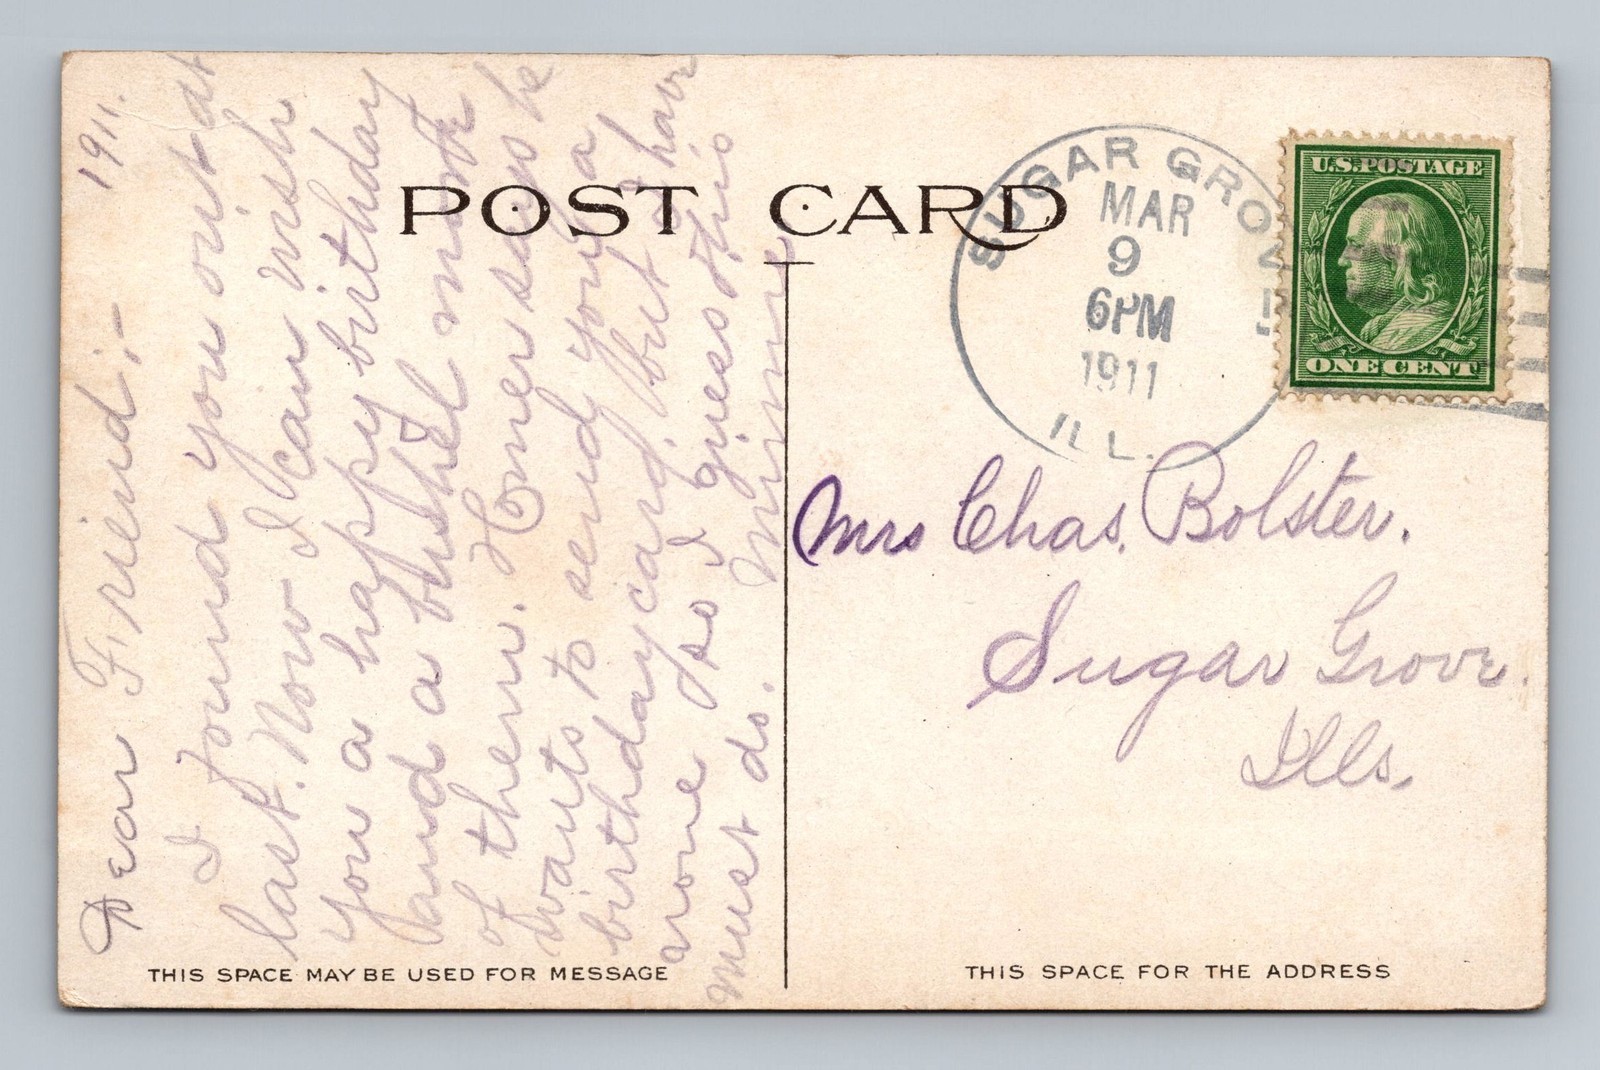 POST CARD
1911.
Dear Friend;-
I found you out at
last. Now I can wish
you a happy birthday
and a bushel more
of them. Homer says he
wants to send you a
birthday card, but I have
none so I guess this
must do. Minnie
THIS SPACE MAY BE USED FOR MESSAGE
SUGAR GROVE
MAR
9
6PM
1911
ILL.
U.S. POSTAGE
ONE CENT
Mrs Chas. Bolster.
Sugar Grove.
Ills.
THIS SPACE FOR THE ADDRESS